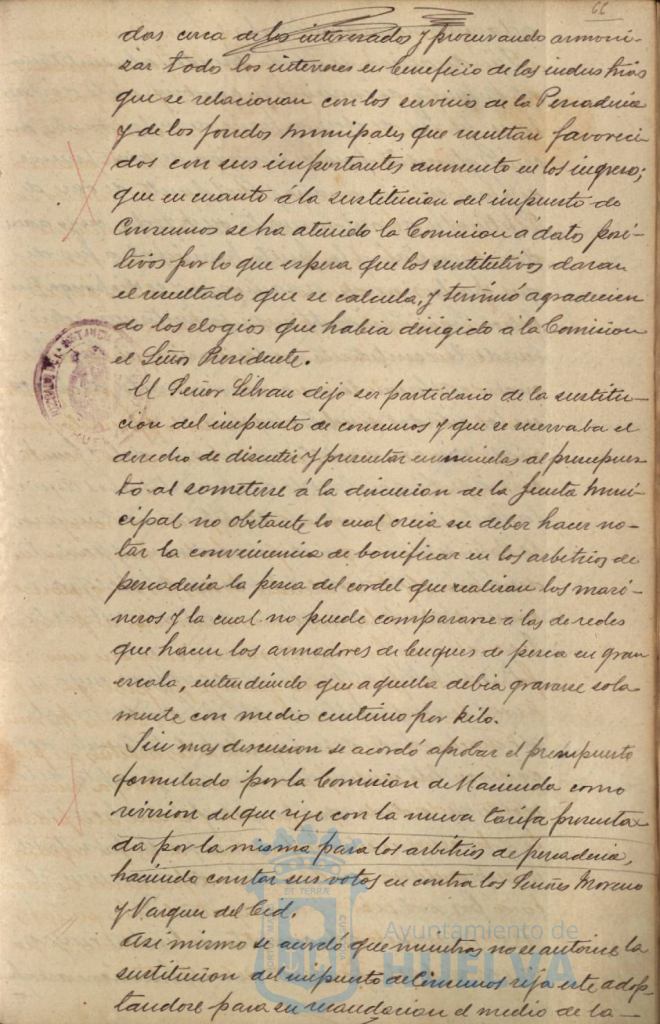 66
das cerca de los interesados y procurando armoni-
zar todo los intereses en beneficio de las industrias
que se relacionan con los servicio de la Pescaderia
y de los fondos municipales que resultan favoreci-
dos con sus importantes aumento en los ingreso;
que en cuanto á la sustitucion del impuesto de
Consumos se ha atenido la Comision á datos posi-
tivos por lo que espera que los sustitutivos daran
el resultado que se calcula, y terminó agradecien
do los elogios que habia dirigido á la Comision
el Señor Presidente.
El Señor Silvan dijo ser partidario de la sustitu-
cion del impuesto de consumos y que se reservaba el
derecho de discutir y presentar enmiendas al presupues
to al someterse á la discusion de la Junta Muni-
cipal no obstante lo cual creia su deber hacer no-
tar la conveniencia de bonificar en los arbitrios de
pescaderia la pesca del cordel que realizan los mari-
neros y la cual no puede compararse á las de redes
que hacen los armadores de buques de pesca en gran
escala, entendiendo que aquella debia gravarse sola
mente con medio centimo por kilo.
Sin mas discusion se acordó aprobar el presupuesto
formulado por la Comision de Hacienda como
revision del que rije con la nueva tarifa presenta
da por la misma para los arbitrios de pescaderia,
haciendo constar sus votos en contra los Señores Moreno
y Vazquez del Cid.
Asi mismo se acordó que mientras no se autorice la
sustitucion del impuesto de Consumos rija este adop-
tandose para su recaudacion el medio de la
Ayuntamiento de
HUELVA